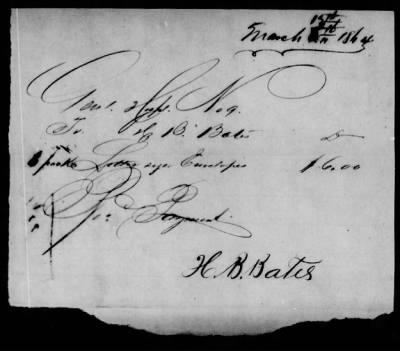 March 1864
Genl. Hspt. No 9.
To H B. Bates Dr
packs Letter size Envelopes $6.00
Rec Payment.
H. B. Bates